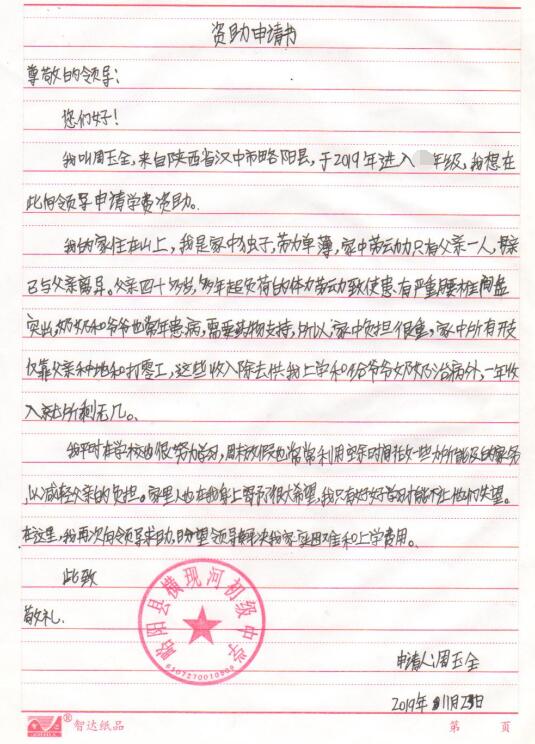 资助申请书
尊敬的领导:
您们好!
我叫周玉全,来自陕西省汉中市略阳县,于2019年进入 年级,我想在
此向领导申请学费资助。
我的家住在山上,我是家中独子,劳力单薄,家中劳动力只有父亲一人,母亲
已与父亲离异。父亲四十多岁,多年超负荷的体力劳动致使患有严重腰椎间盘
突出,奶奶和爷爷也常年患病,需要药物支持,所以家中负担很重,家中所有开支
仅靠父亲种地和打零工,这些收入除去供我上学和给爷爷奶奶治病外,一年收
入就所剩无几。
我平时在学校也很努力学习,周末放假也常常利用空余时间在做一些力所能及的家务
,以减轻父亲的负担。家里人也在我身上寄予很大希望,我只有好好学习才能不让他们失望。
在这里,我再次向领导求助,盼望领导解决我家庭困难和上学费用。
此致
敬礼.
略阳县横现河初级中学
6107270010909
申请人:周玉全
2019年11月23日
智达纸品
第 页